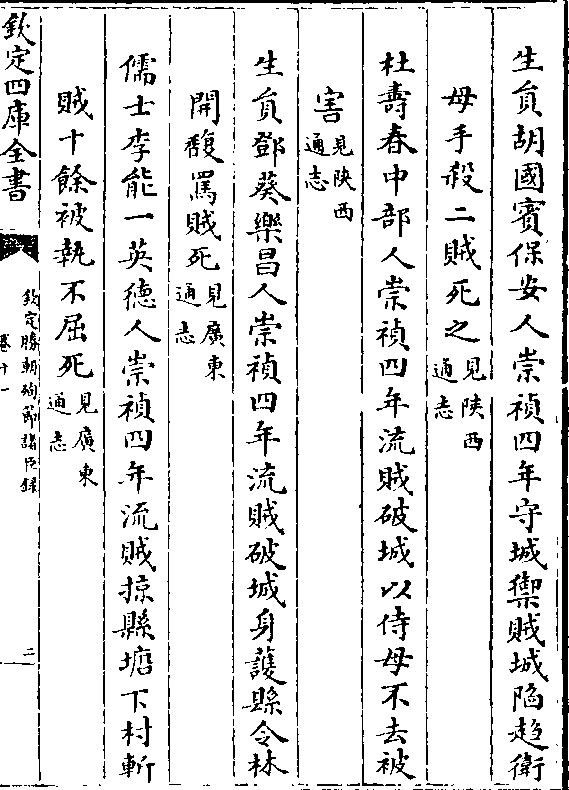 生員胡國賓保安人崇禎四年守城禦賊城陷趨衛
母手殺二賊死之見陝西通志
杜壽春中部人崇禎四年流賊破城以侍母不去被
害見陝西通志
生員鄧葵樂昌人崇禎四年流賊破城身護縣令林
開馥罵賊死見廣東通志
儒士李能一英德人崇禎四年流賊掠縣塘下村斬
賊十餘被執不屈死見廣東通志
欽定四庫全書
欽定勝朝殉節諸臣錄
卷十一
二